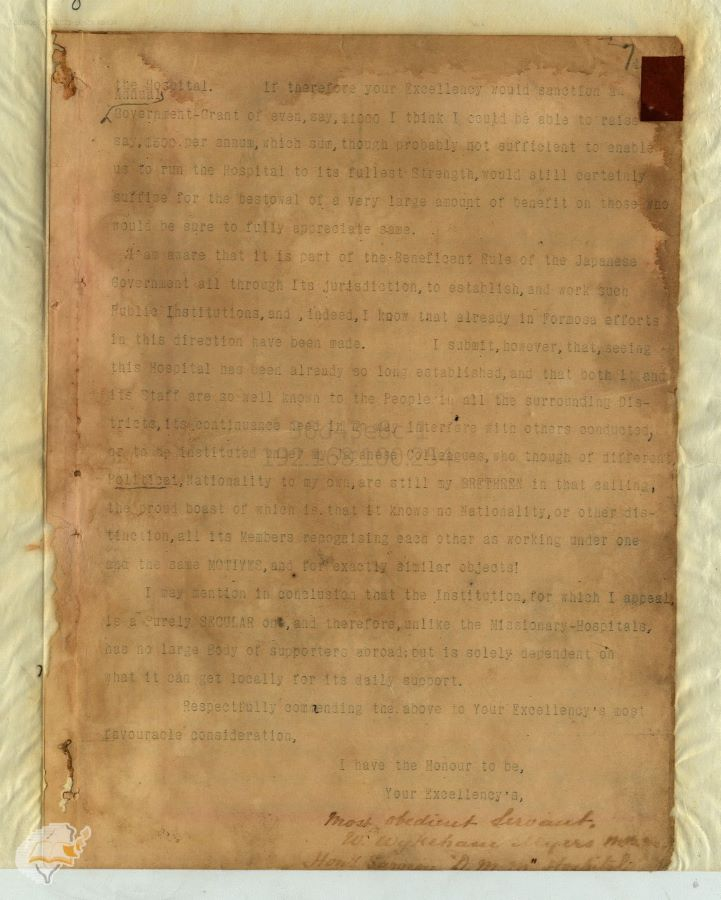 7
the Hospital. If therefore your Excellency would sanction an
Annual
Government-Grant of even, say, $1000 I think I could be able to raise
say, $500 per annum, which sum, though probably not sufficient to enable
us to run the Hospital to its fullest Strength, would still certainly
suffice for the bestowal of a very large amount of benefit on those who
would be sure to fully appreciate same.
I am aware that it is part of the Beneficent Rule of the Japanese
Government all through its jurisdiction, to establish, and work such
Public Institutions, and , indeed, I know that already in Formosa efforts
in this direction have been made. I submit, however, that, seeing
this Hospital has been already so long established, and that both it and
its Staff are so well known to the People in all the surrounding Dis-
tricts, its continuance need in no way interfere with others conducted,
or to be instituted under my Japanese Colleagues, who though of different
Political, Nationality to my own, are still my BRETHREN in that calling,
the proud boast of which is that it knows no Nationality, or other dis-
tinction, all its Members recognising each other as working under one
and the same MOTIVES, and for exactly similar objects!
I may mention in conclusion that the Institution, for which I appeal,
is a Purely SECULAR one, and therefore, unlike the Missionary-Hospitals,
has no large Body of supporters abroad; but is solely dependent on
what it can get locally for its daily support.
Respectfully commending the above to Your Excellency's most
favourable consideration,
I have the Honour to be,
Your Excellency's,
most obedient Servant,
W. Wykeham Myers
Hon'y Surgeon "D. M. M" Hospital